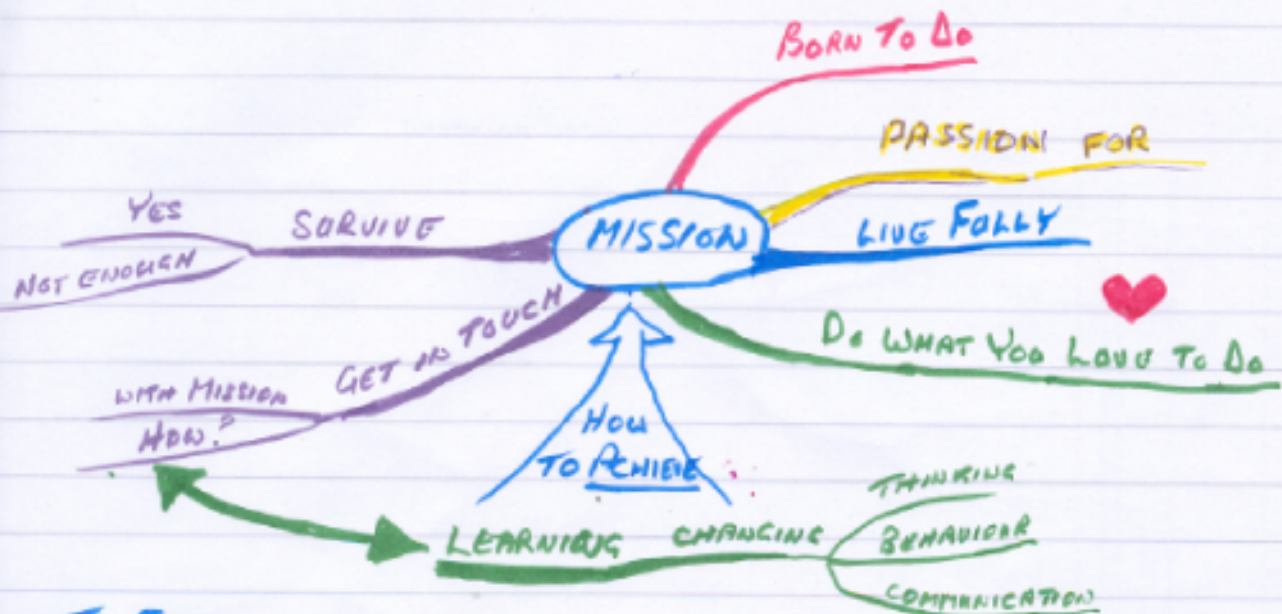 BORN TO DO
PASSION FOR
LIVE FULLY
DO WHAT YOU LOVE TO DO
MISSION
SURVIVE
YES
NOT ENOUGH
GET IN TOUCH
WITH MISSION
HOW?
HOW
TO ACHIEVE
LEARNING CHANGING
THINKING
BEHAVIOUR
COMMUNICATION